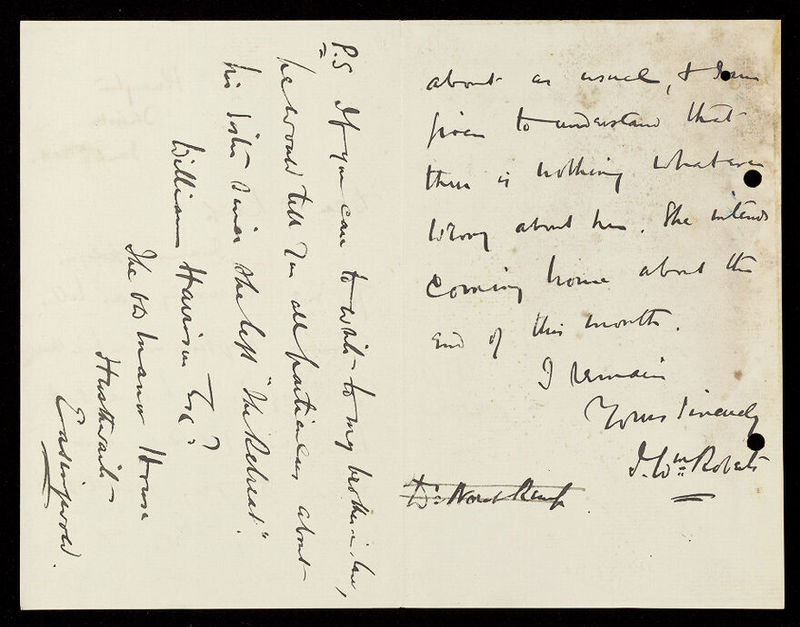 about as usual, & I am
given to understand that
there is nothing whatever
wrong about her. She intends
coming home about the
end of this month.
I remain
Yours sincerely
J. Wm. Roberts
Dr. Norah Kemp
P.S If you care to write to my brother in law,
he would tell you all particulars about
his sister since she left "The Retreat".
William Harrison Esq.
The Old Manor House
Husthwaite
Easingwold.